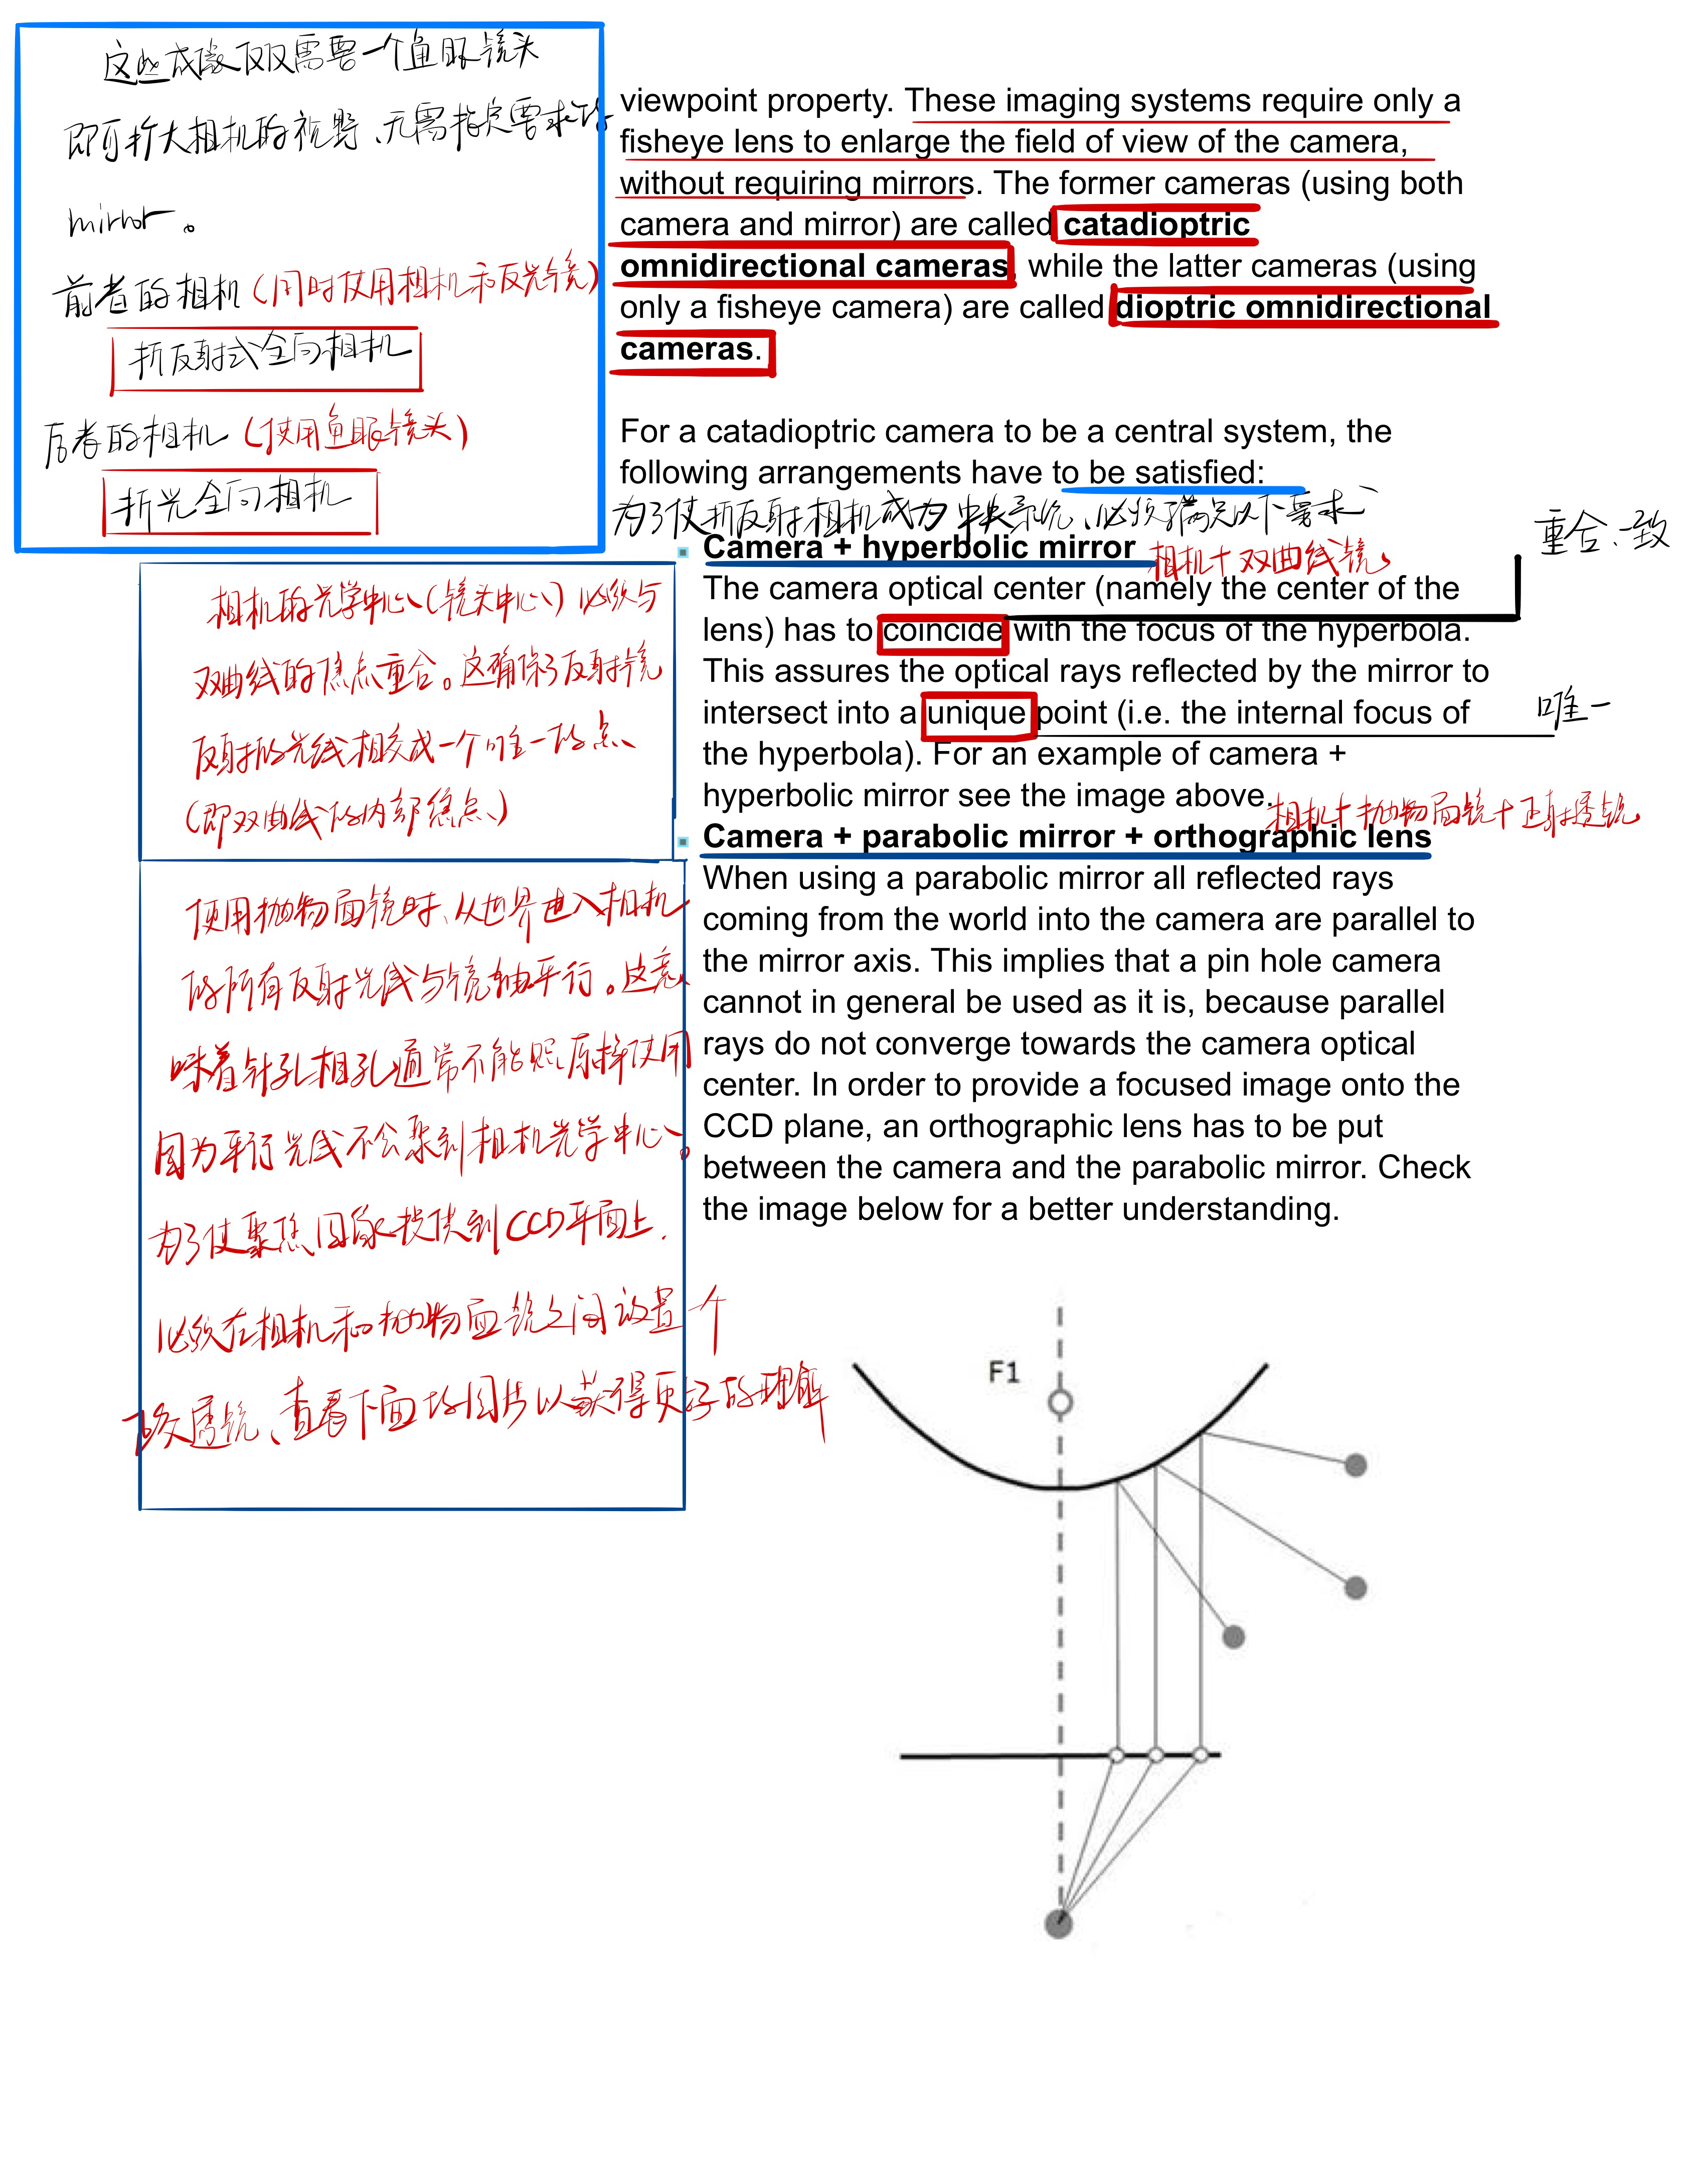 这些成像仅仅需要一个鱼眼镜头
即可扩大相机的视野、无需指定要求的
mirror。
前者的相机(同时使用相机和反光镜)
折反射式全向相机
后者的相机(使用鱼眼镜头)
折光全向相机
viewpoint property. These imaging systems require only a
fisheye lens to enlarge the field of view of the camera,
without requiring mirrors. The former cameras (using both
camera and mirror) are called catadioptric
omnidirectional cameras, while the latter cameras (using
only a fisheye camera) are called dioptric omnidirectional
cameras.
For a catadioptric camera to be a central system, the
following arrangements have to be satisfied:
为了使折反射相机成为中央系统、必须满足以下要求
Camera + hyperbolic mirror
相机+双曲线镜
重合、一致
The camera optical center (namely the center of the
lens) has to coincide with the focus of the hyperbola.
This assures the optical rays reflected by the mirror to
intersect into a unique point (i.e. the internal focus of
唯一
the hyperbola). For an example of camera +
hyperbolic mirror see the image above.
相机+抛物面镜+正射透镜
Camera + parabolic mirror + orthographic lens
When using a parabolic mirror all reflected rays
coming from the world into the camera are parallel to
the mirror axis. This implies that a pin hole camera
cannot in general be used as it is, because parallel
rays do not converge towards the camera optical
center. In order to provide a focused image onto the
CCD plane, an orthographic lens has to be put
between the camera and the parabolic mirror. Check
the image below for a better understanding.
相机的光学中心(镜头中心)必须与
双曲线的焦点重合。这确保了反射镜
反射的光线相交成一个唯一的点、
(即双曲线的内部焦点)
使用抛物面镜时、从世界进入相机
的所有反射光线与镜轴平行。这意
味着针孔相孔通常不能照原样使用
因为平行光线不会聚到相机光学中心。
为了使聚焦图像提供到CCD平面上.
必须在相机和抛物面镜之间设置一个
透镜、查看下面的图片以获得更好的理解
F1